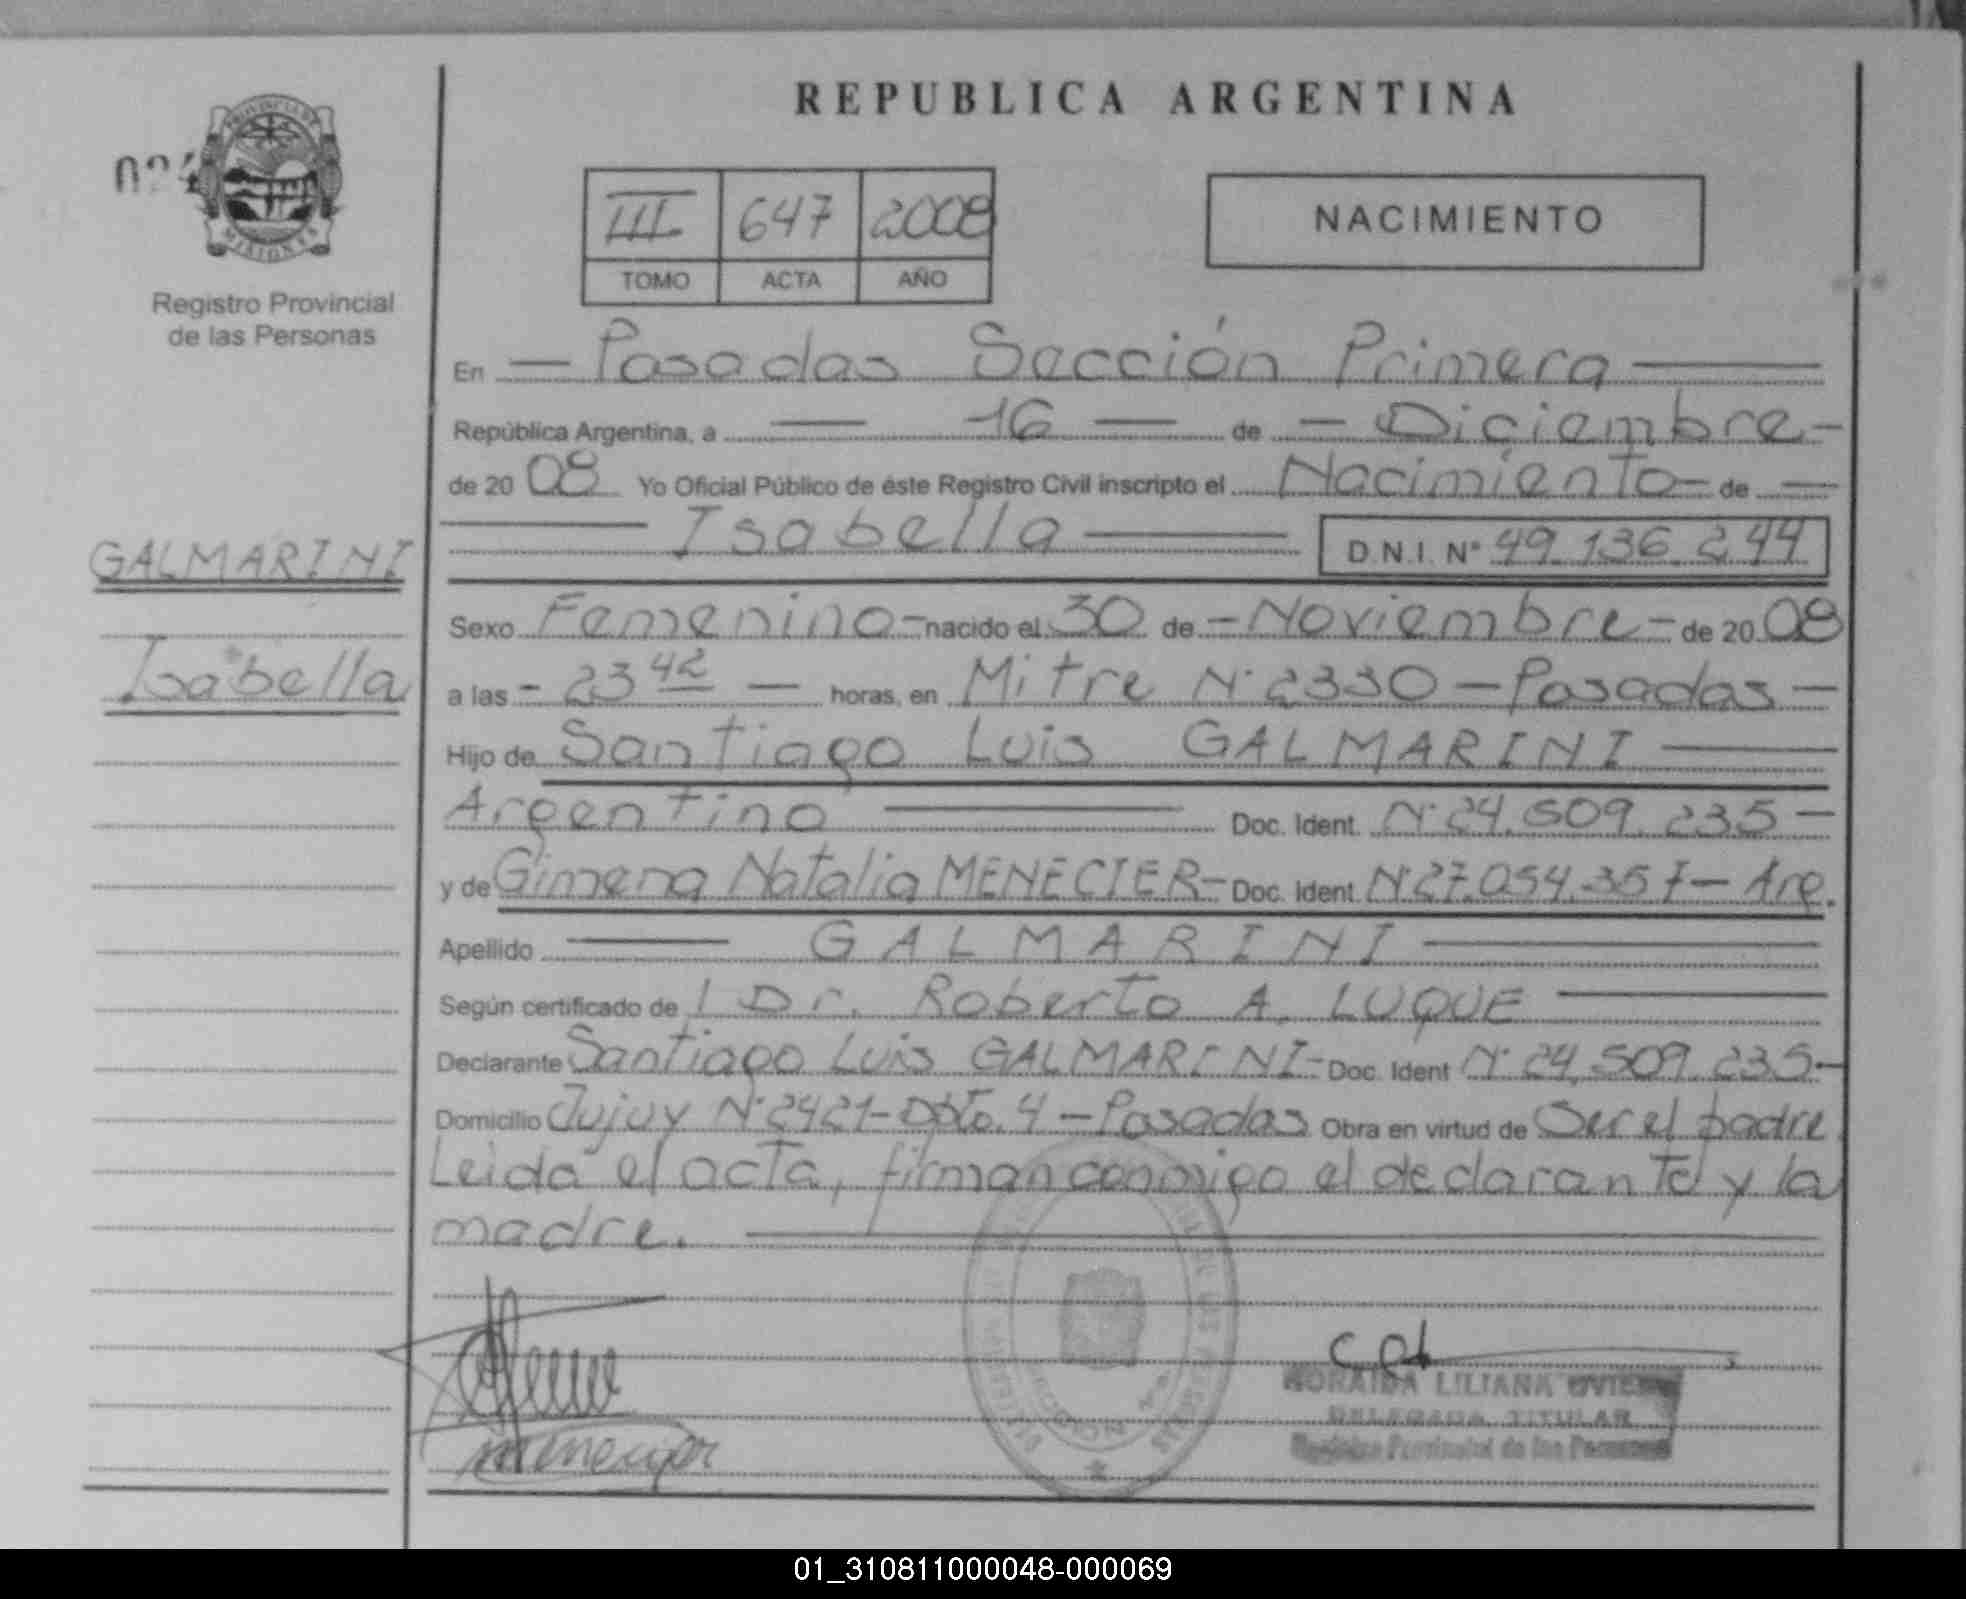 REPUBLICA ARGENTINA
024
PROVINCIA DE
MISIONES
Registro Provincial
de las Personas
III 647 2008
TOMO ACTA AÑO
NACIMIENTO
En — Posadas Sección Primera —
República Argentina, a — 16 — de — Diciembre —
de 20 08 Yo Oficial Público de éste Registro Civil inscripto el Nacimiento — de —
— Isabella — D.N.I. Nº 49.136.244
GALMARINI
Isabella
Sexo Femenino — nacido el 30 de — Noviembre — de 20 08
a las — 23 42 — horas, en Mitre Nº 2330 — Posadas —
Hijo de Santiago Luis GALMARINI —
Argentino — Doc. Ident. Nº 24.509.235 —
y de Gimena Natalia MENECIER — Doc. Ident. Nº 27.054.357 — Arg.
Apellido — GALMARINI —
Según certificado de l Dr. Roberto A. LUQUE —
Declarante Santiago Luis GALMARINI — Doc. Ident Nº 24.509.235 —
Domicilio Jujuy Nº 2421 — Dpto. 4 — Posadas Obra en virtud de Ser el padre
Leida el acta, firman conmigo el declarante y la
madre. —
Menecier
LILIANA
DELEGADA TITULAR
Registro Provincial de las Personas
01_310811000048-000069